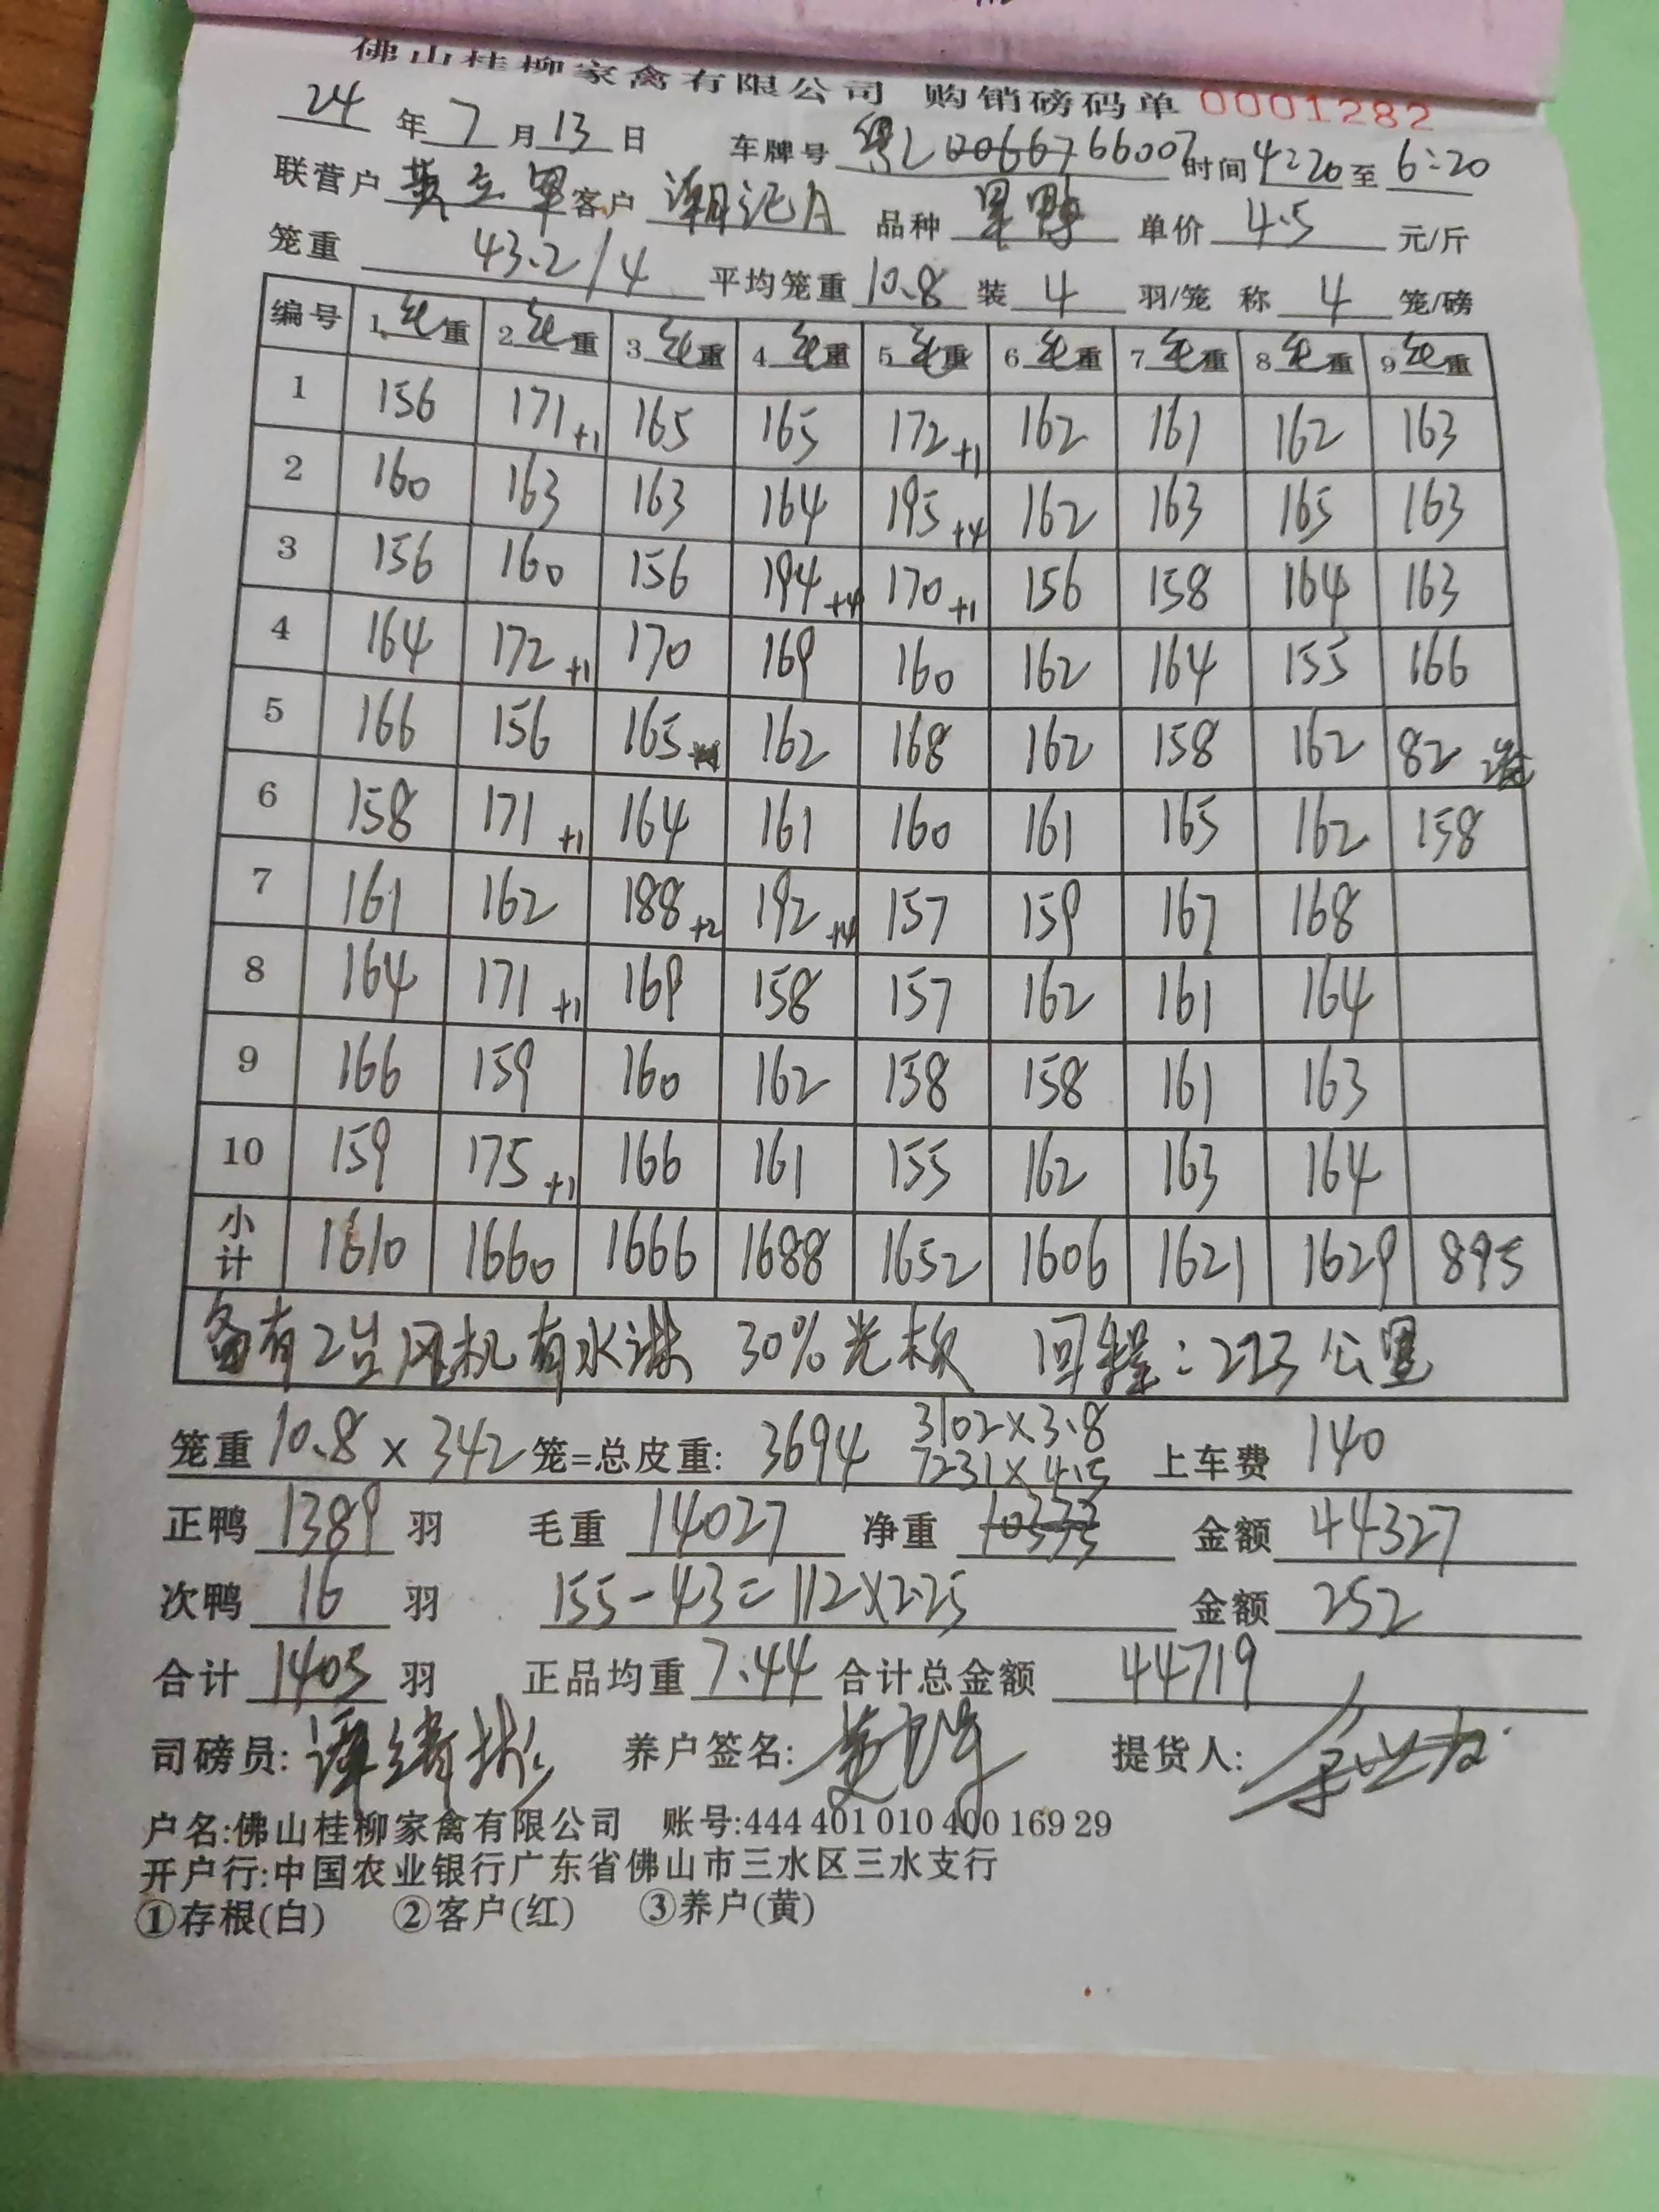 佛山桂柳家禽有限公司 购销磅码单 0001282
24 年 7 月 13 日 车牌号 粤L 时间 4:20 至 6:20
联营户 黄立军 客户 潮记A 品种 单价 4.5 元/斤
笼重 43.2/4 平均笼重 10.8 装 4 羽/笼 称 4 笼/磅
编号 1 毛重 2 毛重 3 毛重 4 毛重 5 毛重 6 毛重 7 毛重 8 毛重 9 毛重
1 156 171+1 165 165 172+1 162 161 162 163
2 160 163 163 164 195+4 162 163 165 163
3 156 160 156 194+4 170+1 156 158 164 163
4 164 172+1 170 169 160 162 164 155 166
5 166 156 165 162 168 162 158 162 82 2笼
6 158 171+1 164 161 160 161 165 162 158
7 161 162 188+2 192+4 157 159 167 168
8 164 171+1 169 158 157 162 161 164
9 166 159 160 162 158 158 161 163
10 159 175+1 166 161 155 162 163 164
小计 1610 1660 1666 1688 1652 1606 1621 1629 895
备有2台风机有水淋 30%光板 回程:223公里
3102×3.8
笼重 10.8 × 342 笼=总皮重: 3694 7231×4.5 上车费 140
正鸭 1389 羽 毛重 14027 净重 金额 44327
次鸭 16 羽 155-43=112×2.25 金额 252
合计 1405 羽 正品均重 7.44 合计总金额 44719
司磅员: 养户签名: 提货人:
户名:佛山桂柳家禽有限公司 账号:444 401 010 400 169 29
开户行:中国农业银行广东省佛山市三水区三水支行
①存根(白) ②客户(红) ③养户(黄)